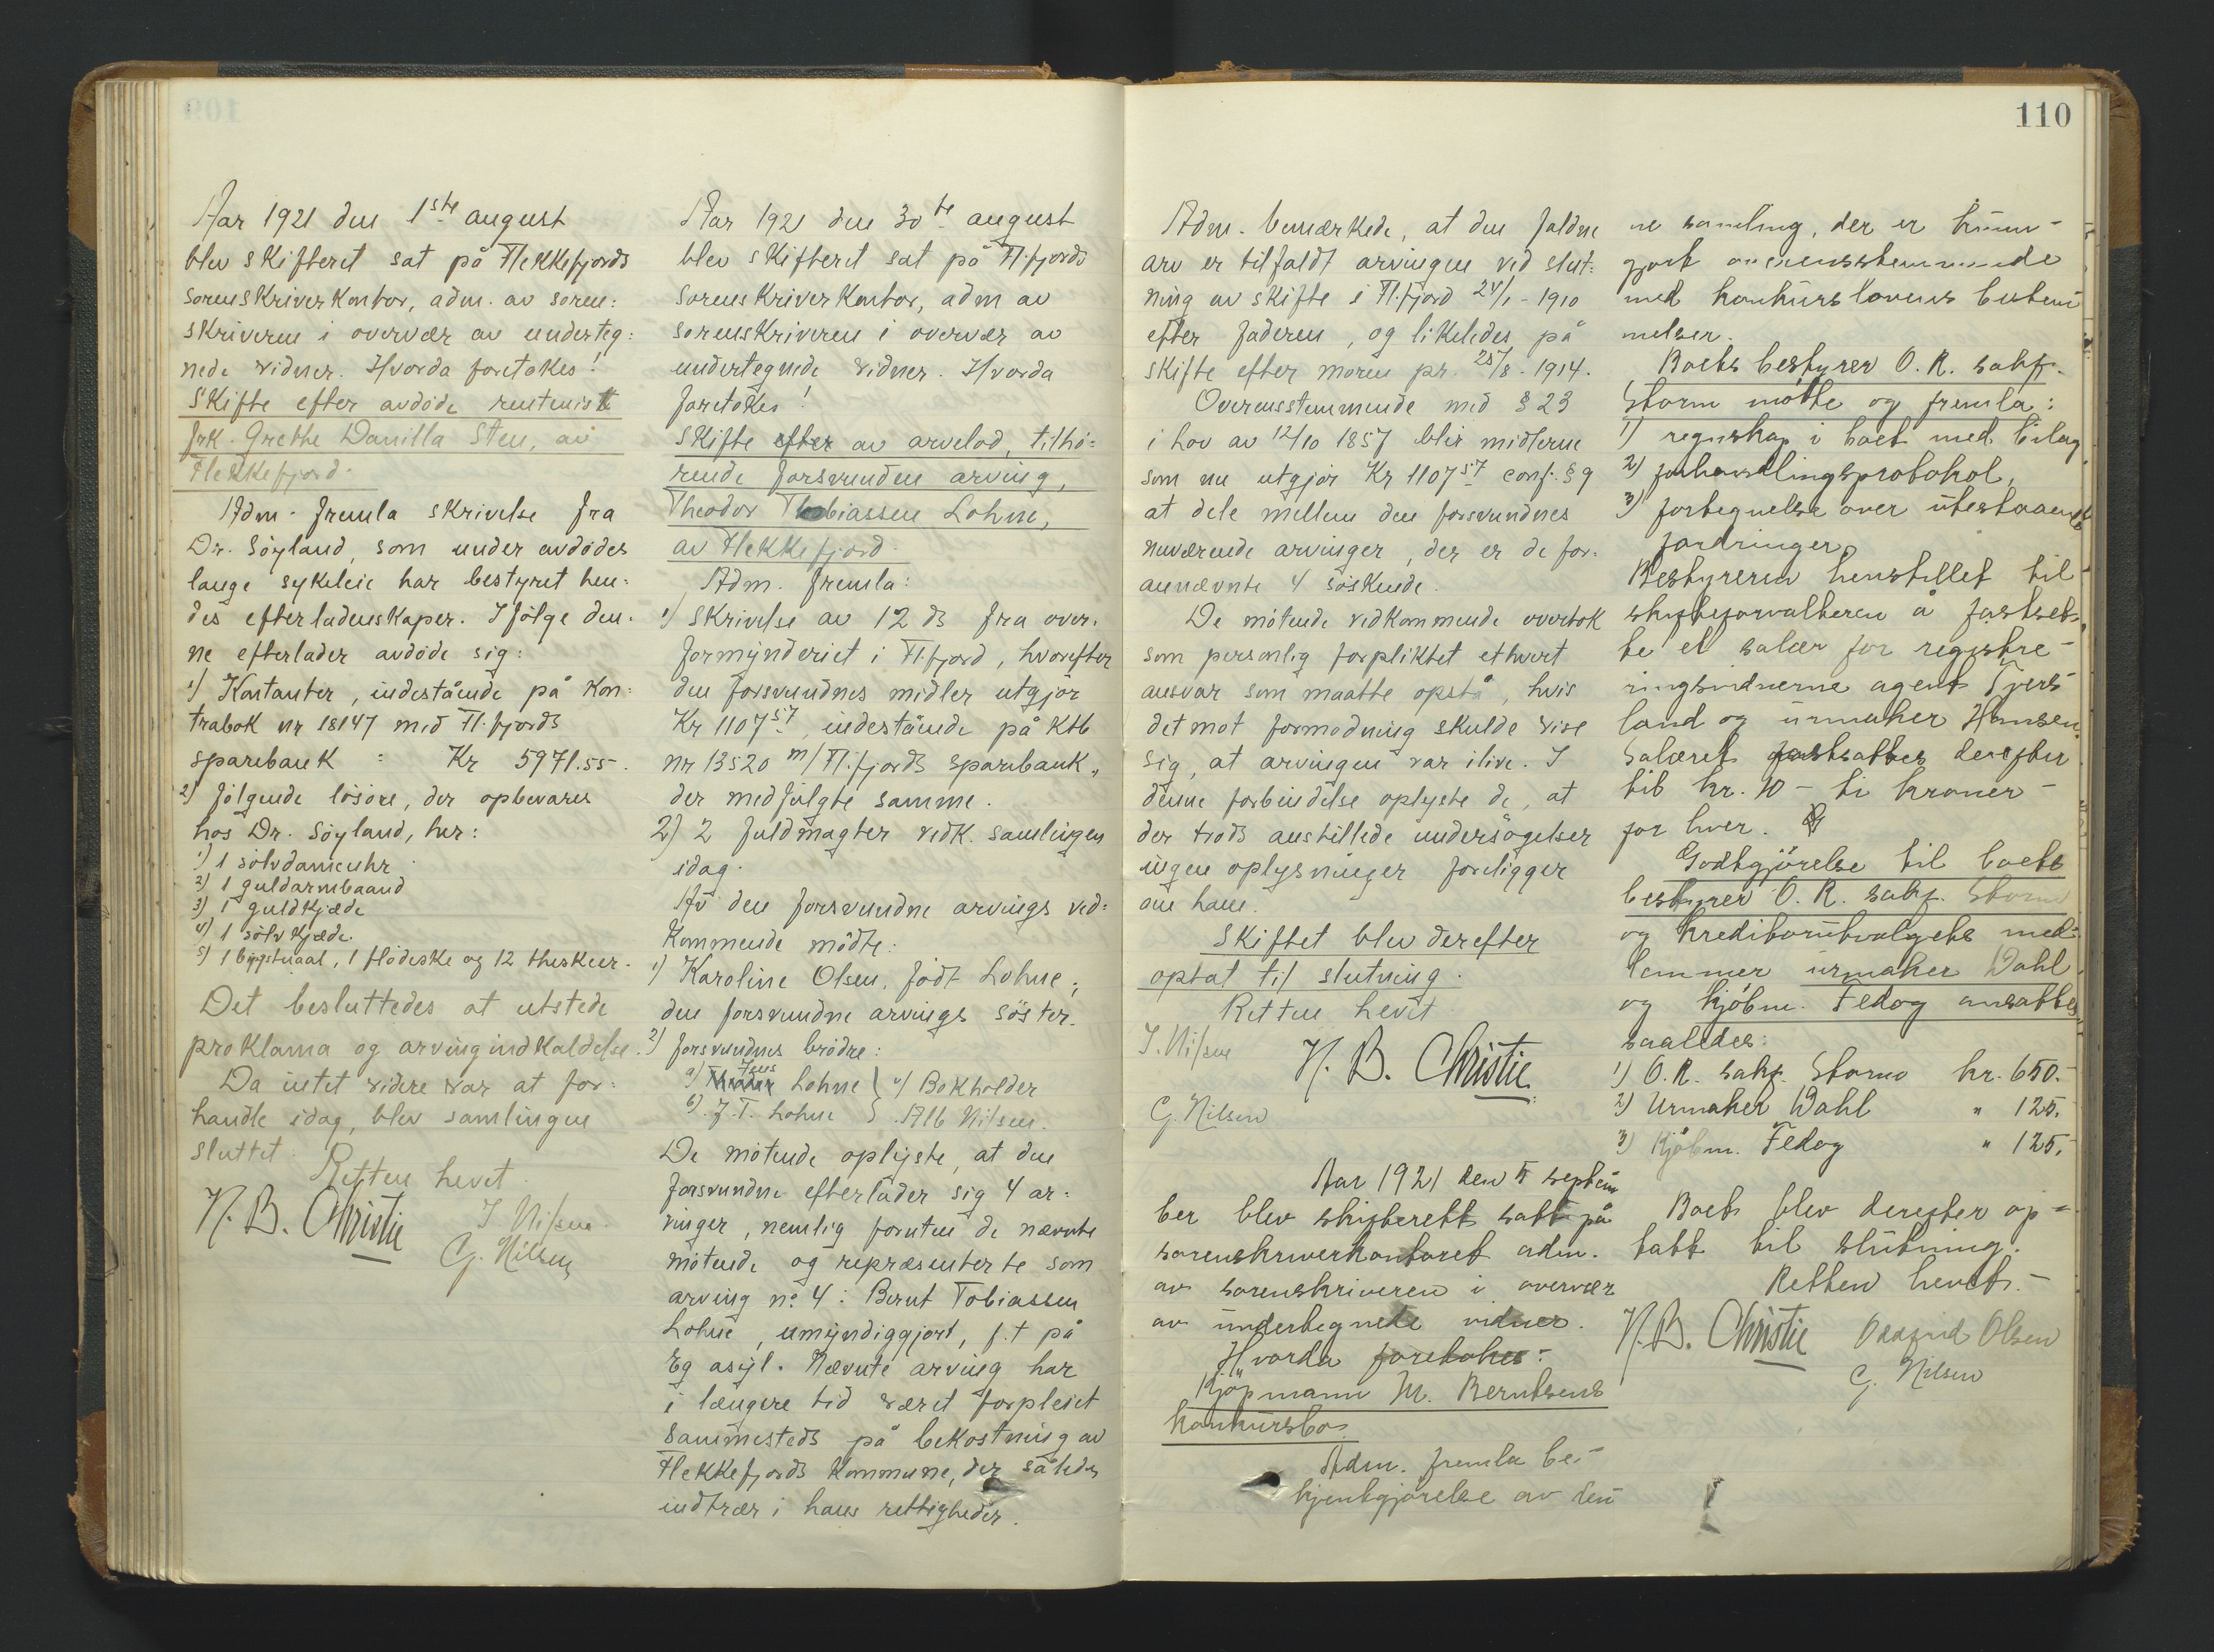 Aar 1921 den 1ste august
blev skifteret sat på Flekkefjords
sorenskriverkontor, adm. av soren:
skriveren i overvær av underteg:
nede vidner. Hvorda foretokes!
Skifte efter avdöde rentenist
frk. Grethe Danilla Sten, av
Flekkefjord.
Adm. fremla skrivelse fra
Dr. Söyland, som under avdödes
lange sykeleie har bestyret hen:
des efterladenskaper. Ifölge den:
ne efterlader avdöde sig:
1) Kontanter, indestående på kon:
trabok nr 18147 med Fl.fjords
sparebank : Kr 5971.55.
2) fölgende lösöre, der opbevares
hos Dr. Söyland, her:
1) 1 sölvdameuhr.
2) 1 guldarmbaand
3) 1 guldkjæde
4) 1 sölvkjæde.
5) 1 brystnaal, 1 flödeske og 12 theskeer.
Det besluttedes at utstede
proklama og arvingindkaldelse.
Da intet videre var at for:
handle idag, blev samlingen
sluttet.
Retten hevet.
N. B. Christie
J. Nilsen.
G. Nilsen
Aar 1921 den 30te august
blev skifteret sat på Fl.fjords
sorenskriverkontor, adm av
sorenskriveren i overvær av
undertegnede vidner. Hvorda
foretokes!
Skifte efter av arvelod, tilhö=
rende forsvunden arving,
Theodor Thobiassen Lohne,
av Flekkefjord.
Adm. fremla:
1) Skrivelse av 12 ds fra over:
formynderiet i Fl.fjord, hvorefter
den forsvundnes midler utgjör
Kr 1107 57, indestående på Ktb
nr 13520 m/Fl.fjords sparebank,
der medfulgte samme.
2) 2 fuldmagter vedk. samlingen
idag.
Av den forsvundne arvings ved:
kommende mödte:
1) Karoline Olsen, födt Lohne;
den forsvundne arvings söster.
2) forsvundnes brödre:
a) Lohne } v/ Bokholder
b) J. T. Lohne } Alb Nilsen.
De mötende oplyste, at den
forsvundne efterlader sig 4 ar:
vinger, nemlig foruten de nævnte
mötende og repræsenterte som
arving no 4: Bernt Tobiassen
Lohne, umyndiggjort, f.t på
Eg asyl. Nævnte arving har
i længere tid været forpleiet
sammesteds på bekostning av
Flekkefjords kommune, der således
indtrær i hans rettigheder.
110
Adm. bemærkede, at den faldne
arv er tilfaldt arvingen ved slut:
ning av skifte i Fl.fjord 24/1 - 1910
efter faderen, og likeledes på
skifte efter moren pr. 25/8 - 1914.
Overensstemmende med § 23
i Lov av 12/10 1857 blir midlerne
som nu utgjör Kr 1107 57 conf. § 9
at dele mellem den forsvundnes
nuværende arvinger, der er de for:
annævnte 4 söskende.
De mötende vedkommende overtok
som personlig forpliktet ethvert
ansvar som maatte opstå, hvis
det mot formodning skulde vise
sig, at arvingen var ilive. I
denne forbindelse oplyste de, at
der trods anstillede undersögelser
ingen oplysninger foreligger
om ham.
Skiftet blev derefter
optat til slutning.
Retten hevet
J. Nilsen
N. B. Christie
G. Nilsen
Aar 1921 den 5 septem
ber blev skifterett satt på
sorenskriverkontoret adm.
av sorenskriveren i overvær
av undertegnede vidner.
Hvorda foretokes:
Kjöpmann M. Berntsens
konkursbo.
Adm. fremla be-
kjentgjörelse av den
ne samling, der er kunn-
gjort overensstemmende
med konkurslovens bestem
melser.
Boets bestyrer O. R. sakf.
Storm mötte og fremla:
1) regnskap i boet med bilag
2) forhandlingsprotokol,
3) fortegnelse over utestaaende
fordringer.
Bestyreren henstillet til
skifteforvalteren å fastset-
te et salær for registre-
ringsvidnerne agent Tjers
land og urmaker Hansen.
Salæret fastsattes derefter
til kr. 10 - ti kroner -
for hver.
Godtgjörelse til boets
bestyrer O. R. sakf. Storm
og kreditorutvalgets med-
lemmer urmaker Dahl
og kjöbm. Fedog ansattes
saaledes:
1) O. R. sakf. Storm kr. 650.-
2) Urmaker Dahl " 125.-
3) Kjöbm. Fedog " 125.-
Boet blev derefter op=
tatt til slutning.
Retten hevet.-
N. B. Christie
Oddfrid Olsen
G. Nilsen